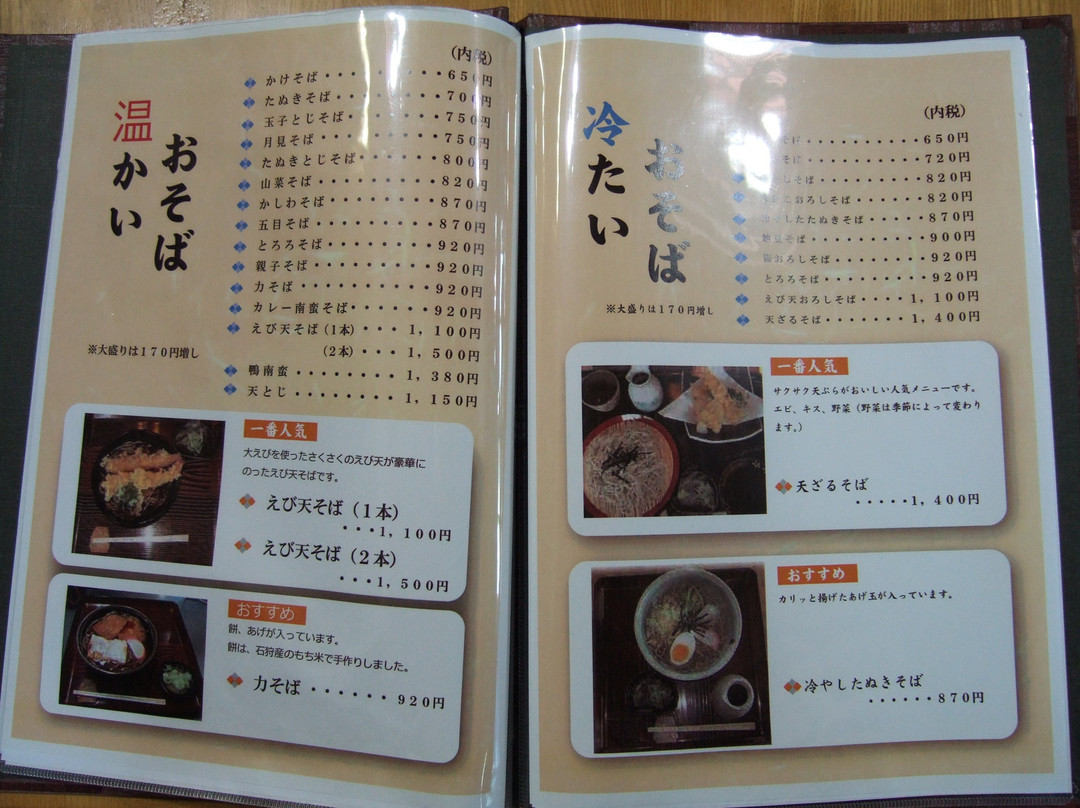 温かい
おそば
(内税)
かけそば・・・・・・・・・650円
たぬきそば・・・・・・・・700円
玉子とじそば・・・・・・・750円
月見そば・・・・・・・・・750円
たぬきとじそば・・・・・・800円
山菜そば・・・・・・・・・820円
かしわそば・・・・・・・・870円
五目そば・・・・・・・・・870円
とろろそば・・・・・・・・920円
親子そば・・・・・・・・・920円
力そば・・・・・・・・・・920円
カレー南蛮そば・・・・・・920円
えび天そば(1本)・・・1,100円
(2本)・・・1,500円
鴨南蛮・・・・・・・・1,380円
天とじ・・・・・・・・1,150円
※大盛りは170円増し
一番人気
大えびを使ったさくさくのえび天が豪華に
のったえび天そばです。
えび天そば(1本)
・・・1,100円
えび天そば(2本)
・・・1,500円
おすすめ
餅、あげが入っています。
餅は、石狩産のもち米で手作りしました。
力そば・・・・・・920円
冷たい
おそば
(内税)
そば・・・・・・・・・・・650円
そば・・・・・・・・・・・720円
しそば・・・・・・・・・・820円
おろしそば・・・・・・・820円
したたぬきそば・・・・・・870円
そば・・・・・・・・・・900円
おろしそば・・・・・・・・920円
とろろそば・・・・・・・・920円
えび天おろしそば・・・・1,100円
天ざるそば・・・・・・・1,400円
※大盛りは170円増し
一番人気
サクサク天ぷらがおいしい人気メニューです。
エビ、キス、野菜(野菜は季節によって変わり
ます。)
天ざるそば
・・・・・1,400円
おすすめ
カリッと揚げたあげ玉が入っています。
冷やしたぬきそば
・・・・・・870円